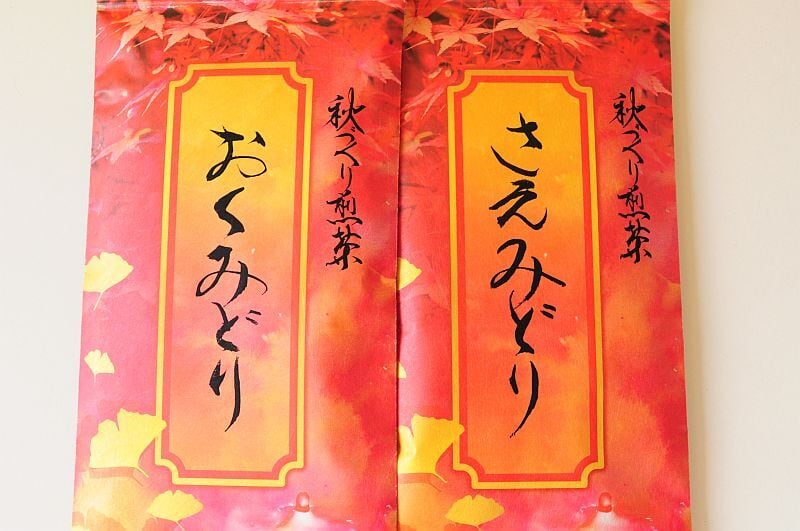 秋づくり煎茶
さえみどり
秋づくり煎茶
おくみどり